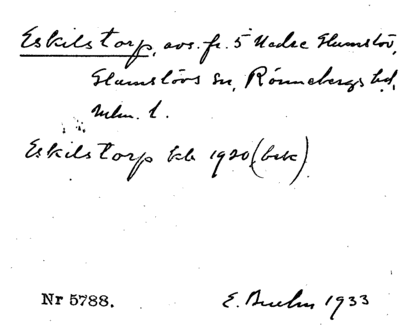 Eskilstorp, avs. fr. 5 Nedre Glumslöv,
Glumslövs sn, Rönnebergs hd,
Mlm. l.
Eskilstorp kb 1920 (bek)
Nr 5788.
E. 1933